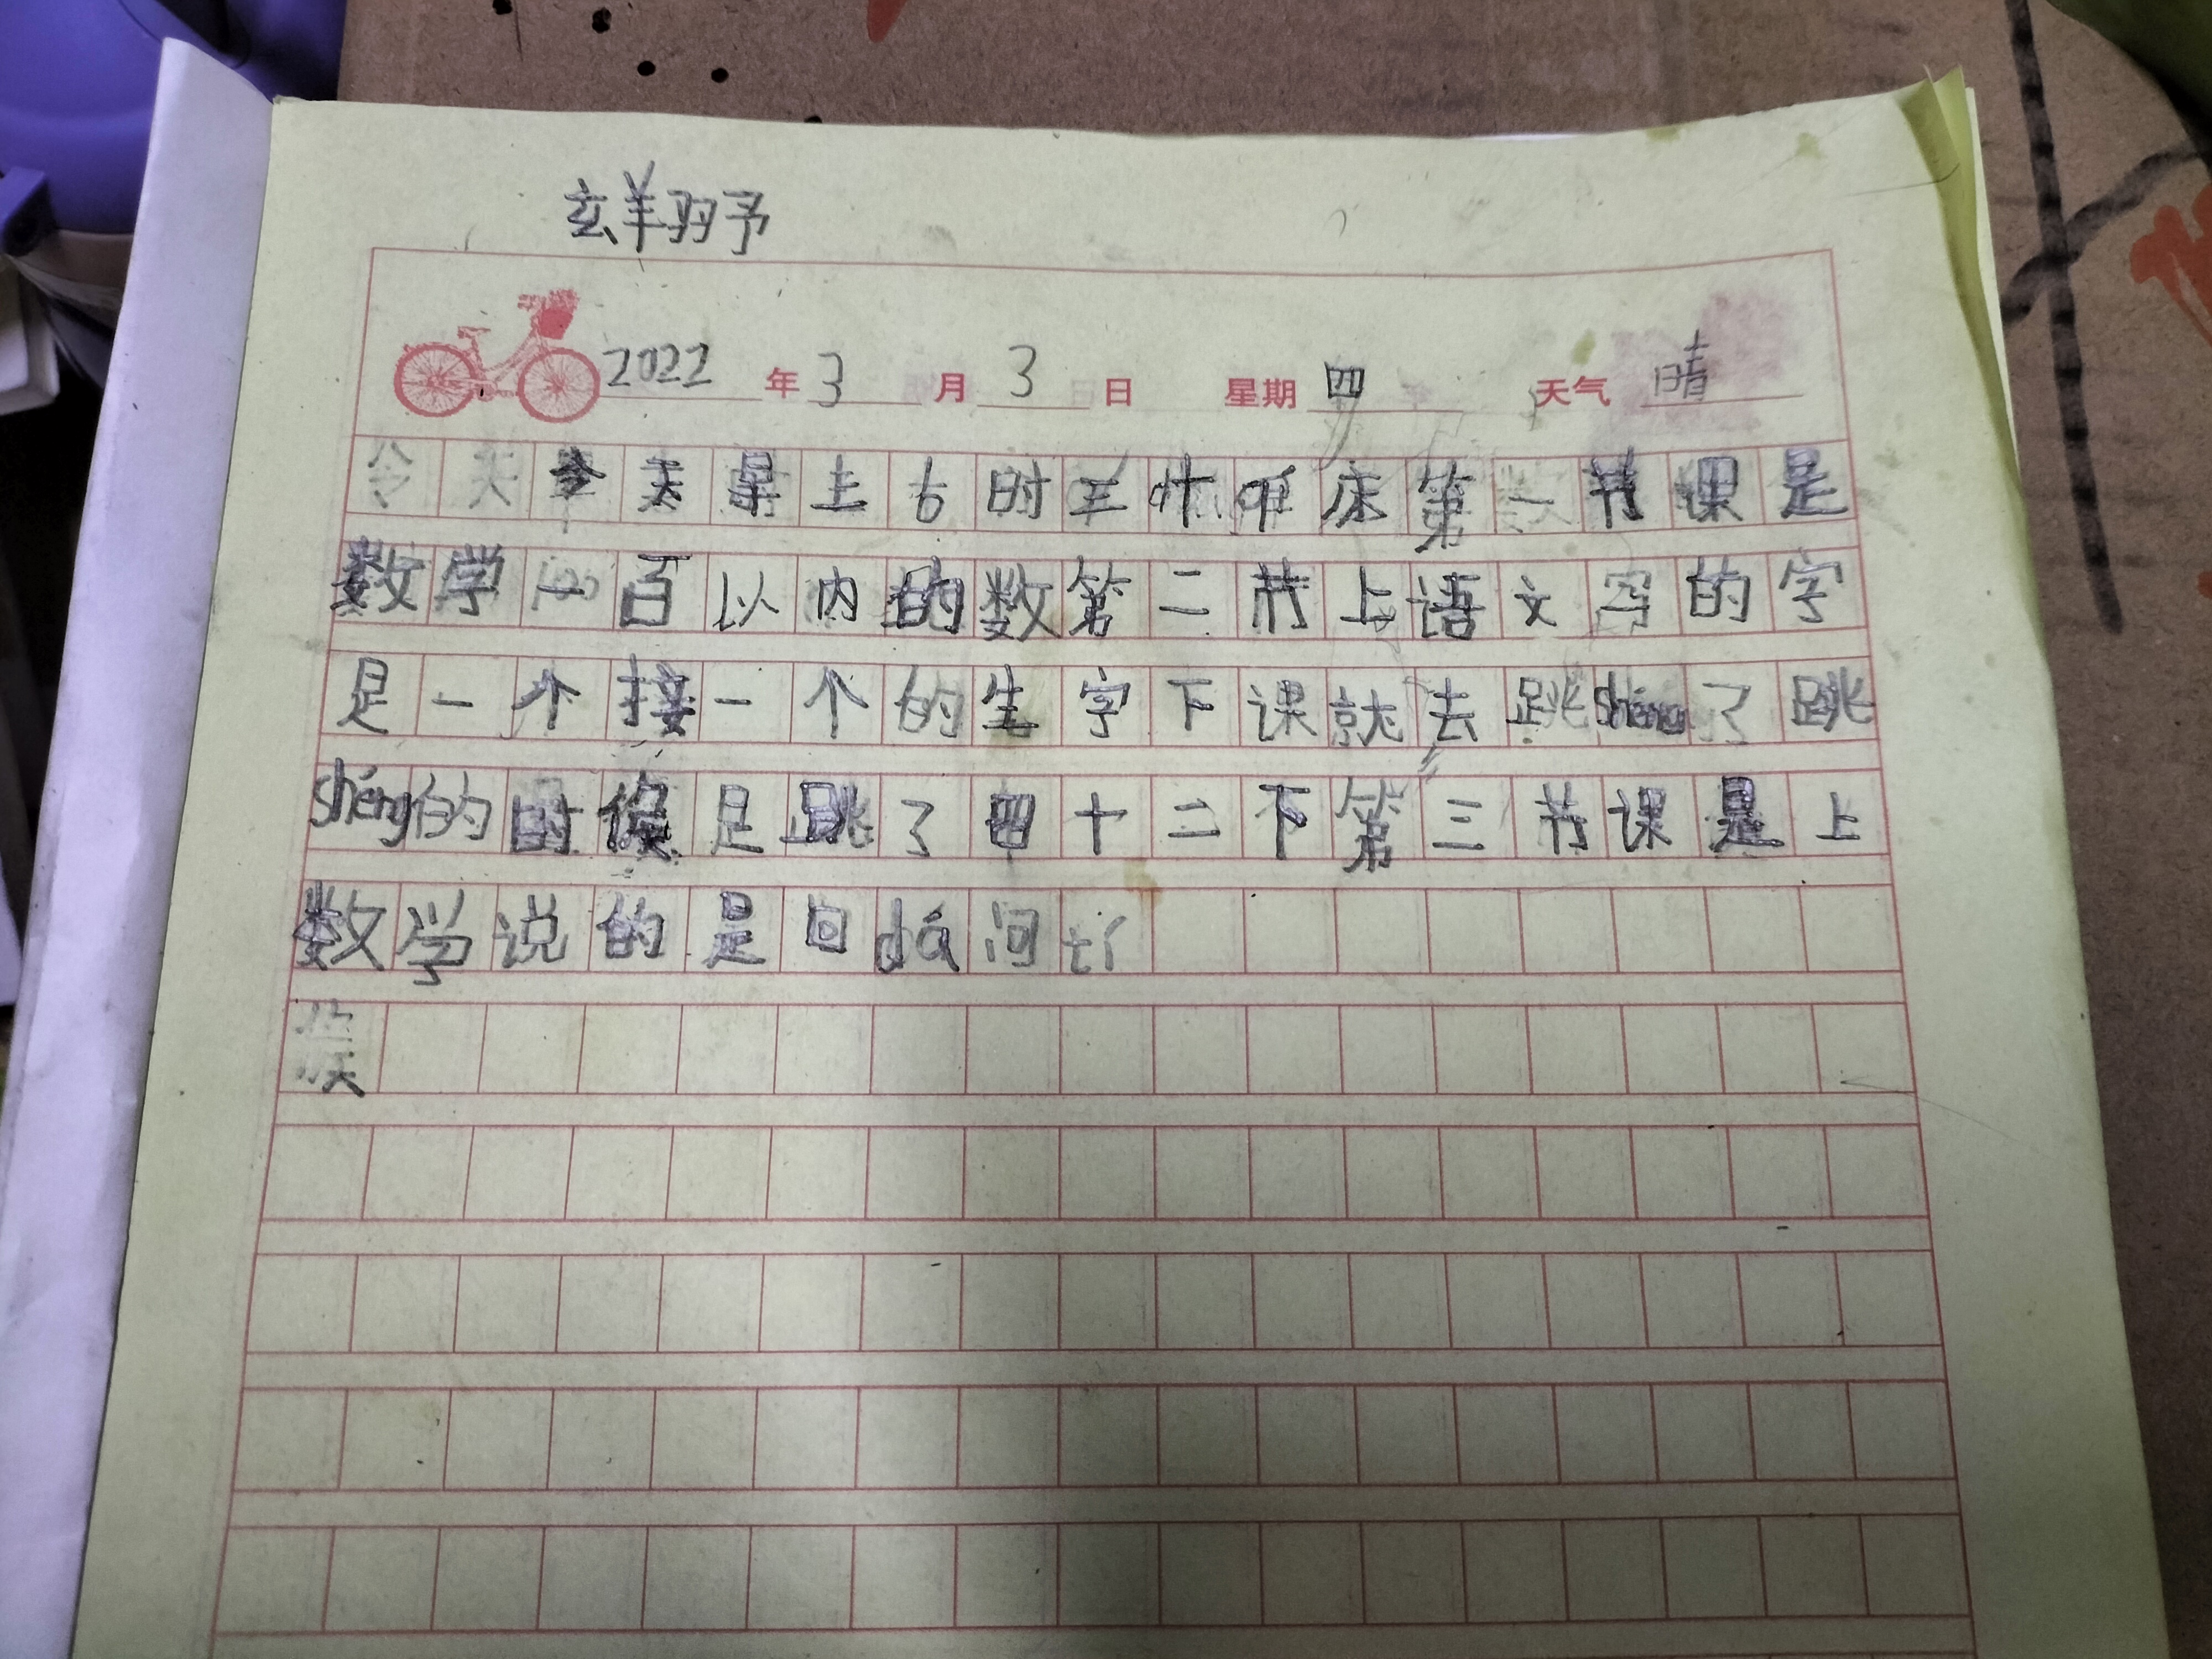 玄羊羽予
2022 年 3 月 3 日 星期 四 天气 晴
今天早上六时三十 床第一节课是
数学一百以内的数第二节上语文写的字
是一个接一个的生字下课就去跳shéng了跳
shéng的时候是跳了四十二下第三节课是上
数学说的是回dá问tí